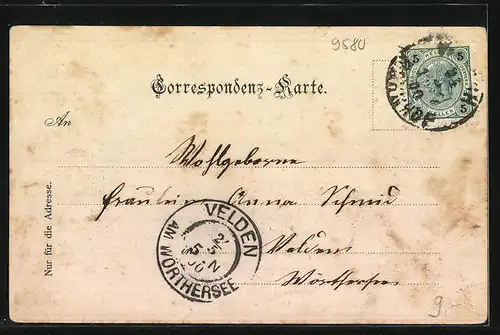 9580
Correspondenz-Karte.
An
Wohlgeborne
Fräulein Anna Schmid
Velden
Wörthersee
Nur für die Adresse.
VELDEN
AM WÖRTHERSEE
5
HELLER
9.-